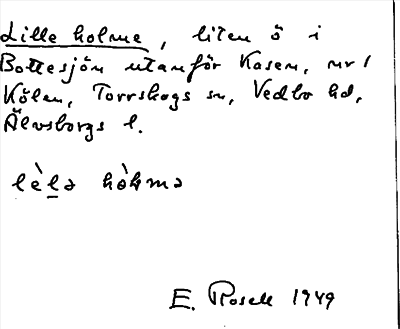 Lille holme, liten ö i
Bottesjön utanför Kasen, nr 1
Kölen, Torrskogs sn, Vedbo hd,
Älvsborgs l.
lèlə hòlmə
E. Rosell 1949